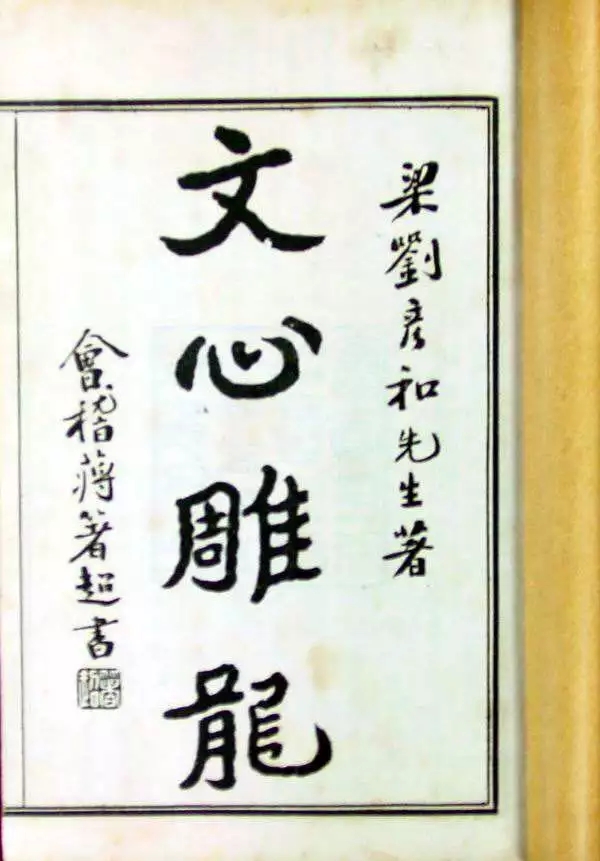 梁劉彥和先生著
文心雕龍
會稽蔣箸超書
箸超